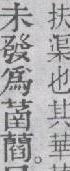 扶渠也其華
未發爲菡藺。